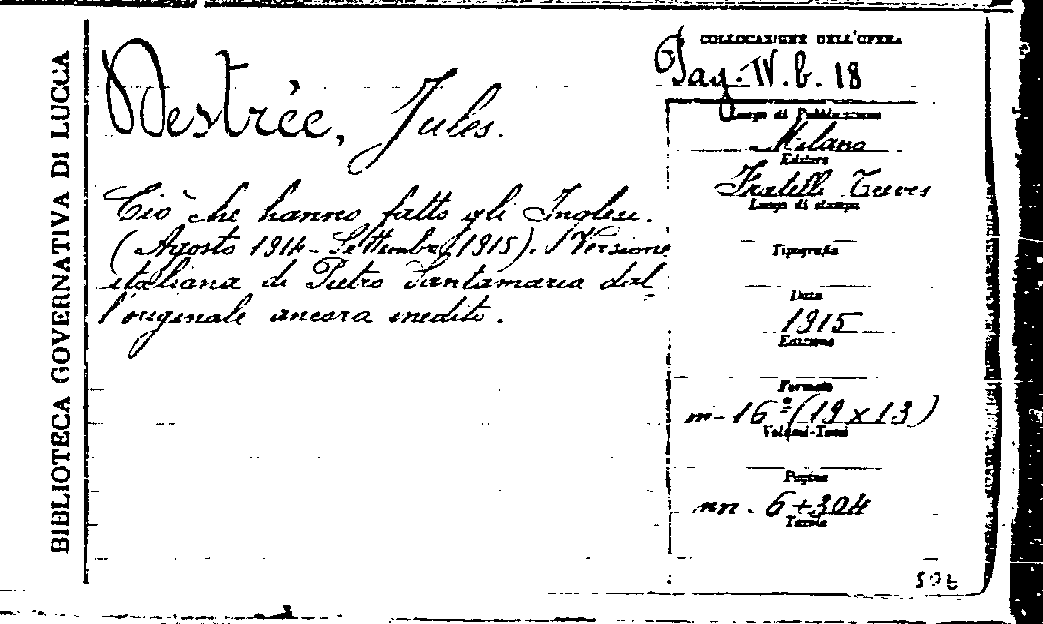 BIBLIOTECA GOVERNATIVA DI LUCCA
Destrèe, Jules.
Ciò che hanno fatto gli Inglesi.
(Agosto 1914 - Settembre 1915). Versione
italiana di Pietro Santamaria dal-
l'originale ancora inedito.
COLLOCAZIONE DELL'OPERA
Pag. IV. b. 18
Luogo di Pubblicazione
Milano
Editore
Fratelli Treves
Luogo di stampa
Tipografia
Data
1915
Edizione
Formato
in-16º (19 x 13)
Volumi-Tomi
Pagine
nn. 6+304
Tavole